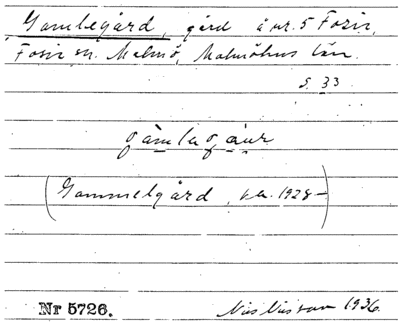 Gamlegård, gård å nr. 5 Fosie,
Fosie sn. Malmö, Malmöhus län.
S. 33
gàmlagå̀ur
(Gammelgård, 1928–)
Nr 5726. Nils Nilsson 1936.